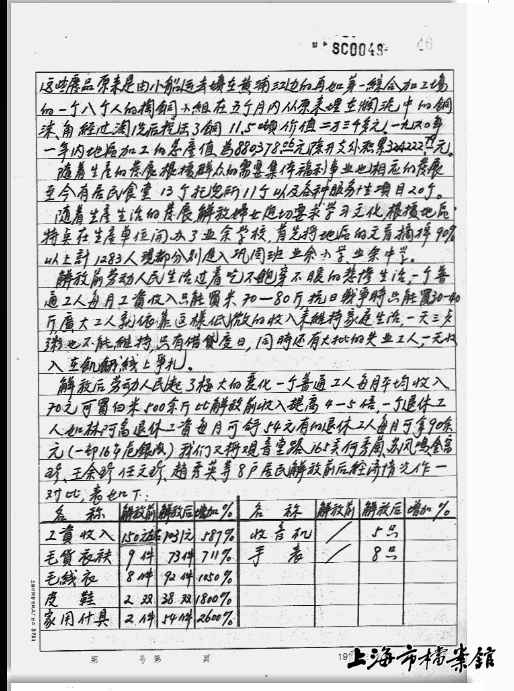 SC0048
46
这些废品原来是由小船运去填在黄浦江边的再如第一综合加工场
的一个八个人的掏铜小组在五个月内从原来埋在烂泥中的铜
渣、角经过淘洗后抢送了铜11.5吨价值二万三千多元。一九六0年
一年内地区加工的总产值为880378元除开支外积累324222元。
随着生产的发展根据群众的需要集体福利事业也相应的发展
至今有居民食堂13个托儿所11个以及各种服务性项目20个。
随着生产生活的发展解放妇女迫切要求学习文化根据地区
特点在生产单位间办了业余学校,首先将地区的文盲摘掉90%
以上计1283人现都分别进入巩固班业余小学业余中学。
解放前劳动人民生活过着吃不饱穿不暖的悲惨生活,一个普
通工人每月工资收入只能买米70—80斤抗日战争时只能买30—40
斤,广大工人就依靠这样低微的收入来维持家庭生活,一天三支
粥也不能维持,只有借贷度日,同时还有大批的失业工人一元收
入在饥饿线上争扎。
解放后劳动人民起了极大的变化一个普通工人每月平均收入
70元可买白米500余斤比解放前收入提高4—5倍一个退休工
人如林阿高退休工资每月可领54元有的退休工人每月可拿90余
元 我们又将观音堂路165弄何秀南、苏凤鸣、
王余 任文 赵秀英等8户居民解放前后经济情况作一
对比,表如下:
名称 解放前 解放后 增加% 名称 解放前 解放后 增加%
工资收入 150元 1031元 587% 收音机 / 5只
毛货衣袄 9件 73件 711% 手表 / 8只
毛线衣 8件 92件 1050%
皮鞋 2双 38双 1800%
家用什具 2件 54件 2600%
第 号第 页 19
上海市档案馆